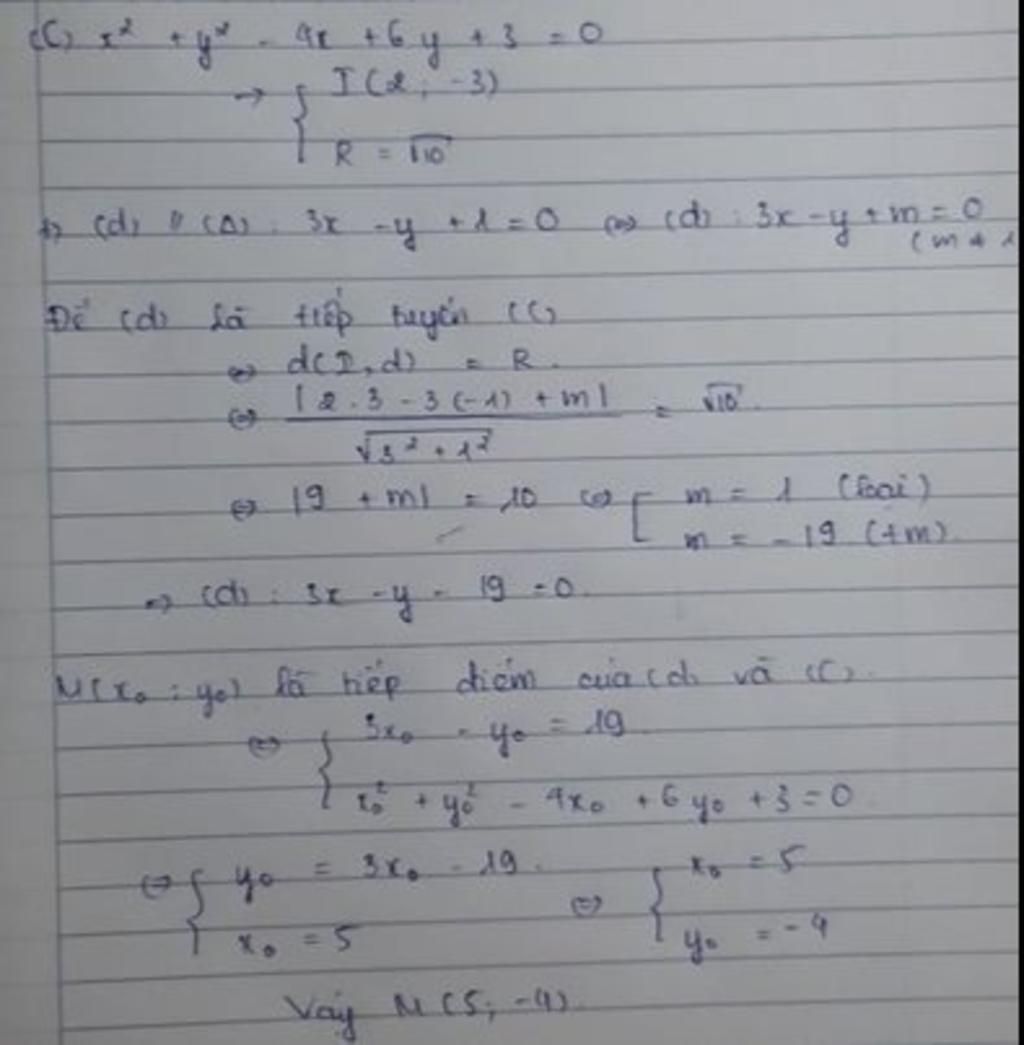 (C) x² + y² - 4x + 6y + 3 = 0
→ { I (2 ; -3)
R = √10
(d) // (Δ) : 3x - y + 1 = 0 ⇔ (d) : 3x - y + m = 0
(m ≠ 1
Để (d) là tiếp tuyến (C)
⇔ d(I, d) = R.
⇔ |2.3 - 3(-1) + m| / √3² + 1² = √10.
⇔ |9 + m| = 10 ⇔ [ m = 1 (loại)
m = -19 (tm)
⇒ (d) : 3x - y - 19 = 0.
M(x₀ ; y₀) là tiếp điểm của (d) và (C).
⇔ { 3x₀ - y₀ = 19
x₀² + y₀² - 4x₀ + 6y₀ + 3 = 0
⇔ { y₀ = 3x₀ - 19. ⇔ { x₀ = 5
x₀ = 5 y₀ = -4
Vậy M (5; -4)